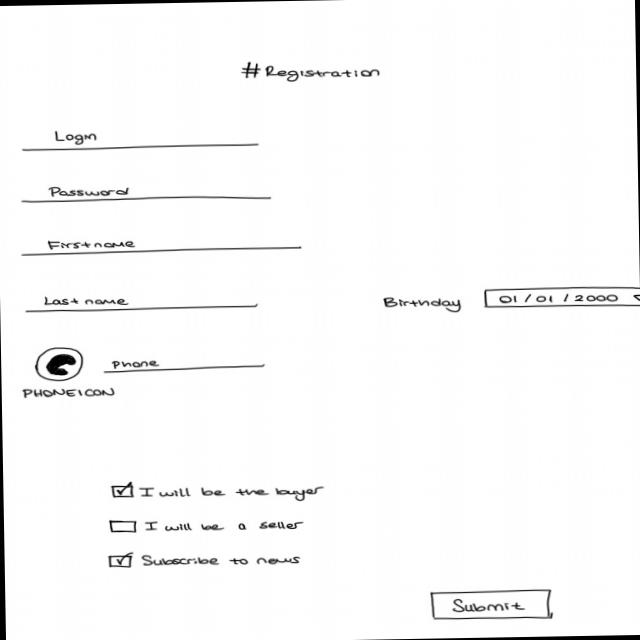 #Registration
Login
Password
First name
Last name
Birthday 01/01/2000
Phone
PHONEICON
I will be the buyer
I will be a seller
Subscribe to news
Submit